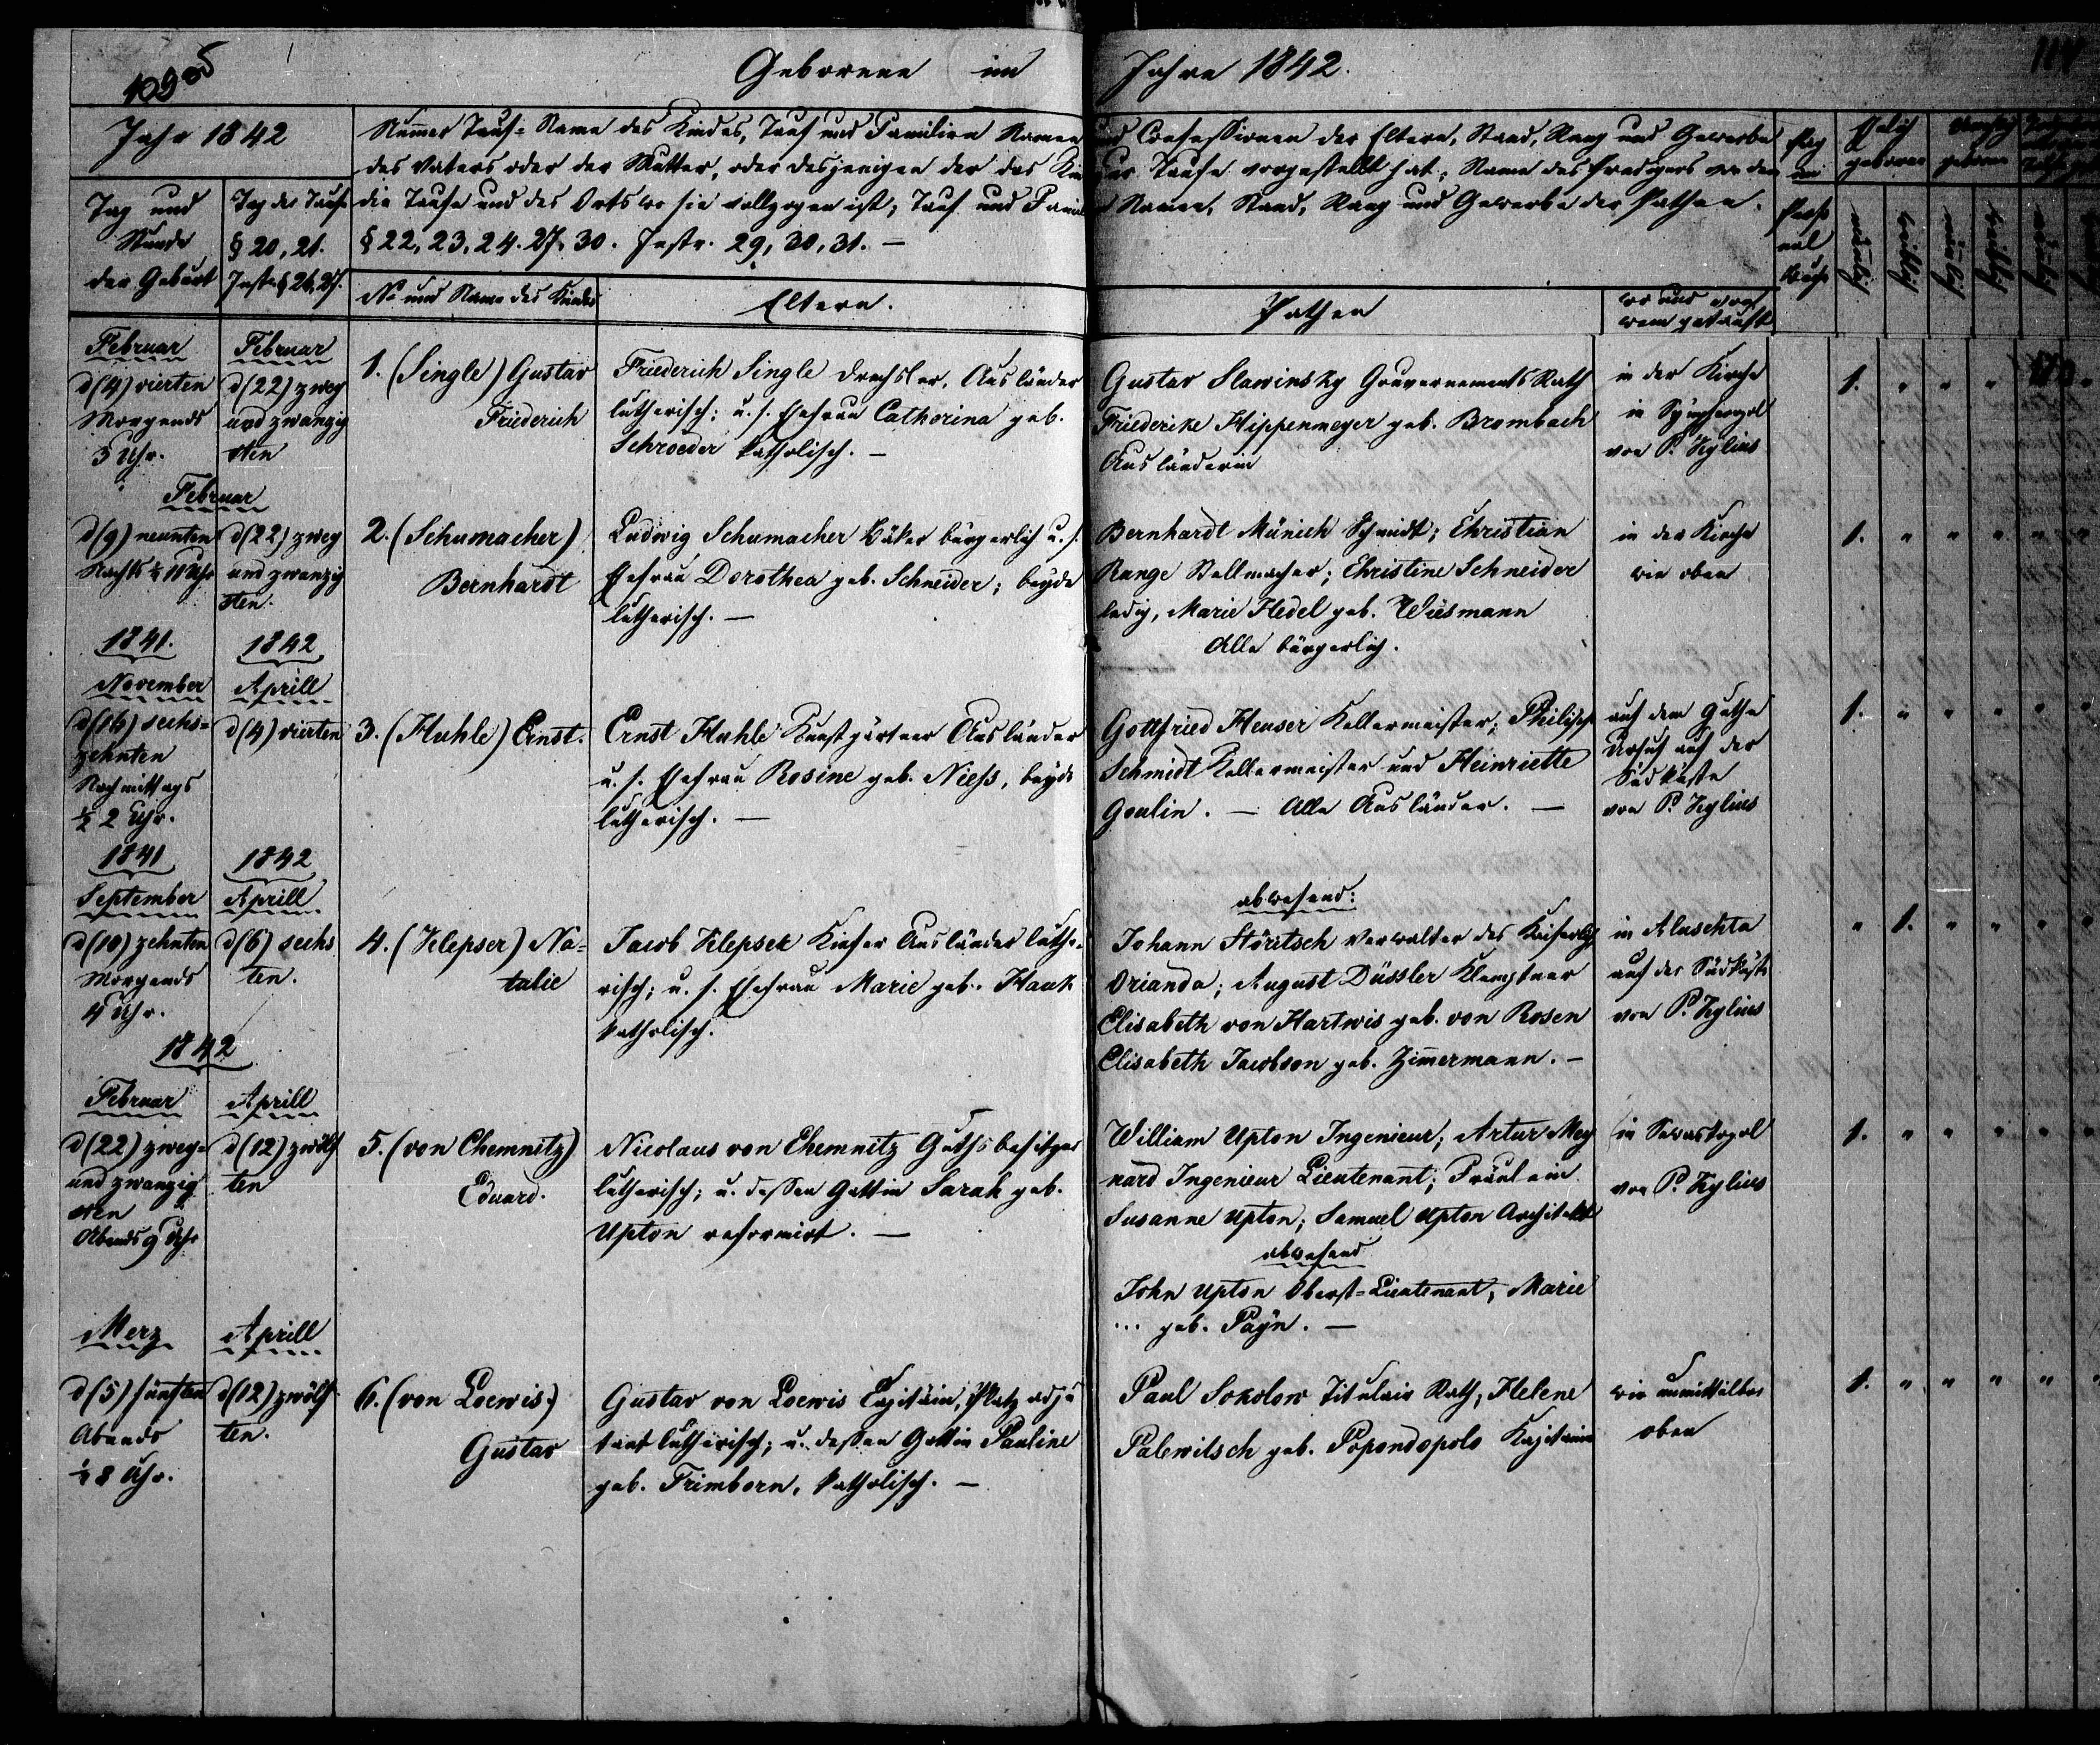 Geborene im Jahre 1842.
Jahr 1842
Tag und
Stunde
der Geburt
Tag der Taufe
§ 20, 21.
Instr. § 26, 27.
Numer Tauf-Name des Kindes, Tauf und Familien Namen und Confessionen der Eltern, Stand, Rang und Gewerbe
des Vaters oder der Mutter, oder desjenigen der das Kind zur Taufe vorgestellt hat; Name des Predigers der
die Taufe und des Orts wo sie vollzogen ist; Tauf und Familien Namen, Stand, Rang und Gewerbe der Pathen.
§ 22, 23, 24. 27. 30. Instr. 29, 30, 31. —
No und Name des Kindes
Eltern.
Pathen
wo und von
wem getauft
geboren
männlich
weiblich
männlich
weiblich
Februar
d (4) vierten
Morgends
5 Uhr.
Februar
d (22) zwey
und zwanzig
sten
1. (Single) Gustav
Friederich
Friederich Single Drechsler, Ausländer
lutherisch; u. s. Ehefrau Catharina geb.
Schroeder katholisch. —
Gustav Slawinsky Gouvernements Rath
Friederike Hippenmeyer geb. Brombach
Ausländerin
in der Kirche
in Sympheropol
von P. Kylius
1.
Februar
d (9) neunten
Nachts ½ 11 Uhr
d (22) zwey
und zwanzig
sten.
2. (Schumacher)
Bernhardt
Ludwig Schumacher Bäker bürgerlich u. s.
Ehefrau Dorothea geb. Schneider; beyde
lutherisch. —
Bernhardt Münich Schmidt; Christian
Range Stellmacher; Christine Schneider
ledig, Marie Hedel geb. Wiesmann
Alle bürgerlich.
in der Kirche
wie oben
1.
1841.
November
d (16) sechs=
zehnten
Nachmittags
½ 2 Uhr.
1842
Aprill
d (4) vierten
3. (Huhle) Ernst.
Ernst Huhle Kunstgärtner Ausländer
u. s. Ehefrau Rosine geb. Niess, beyde
lutherisch. —
Gottfried Heuser Kellermeister; Philipp
Schmidt Kellermeister und Heinriette
Goulin. — Alle Ausländer. —
auf dem Guthe
Ursuf auf der
Südküste
von P. Kylius
1.
1841
September
d (10) zehnten
Morgends
4 Uhr.
1842
Aprill
d (6) sechs
ten.
4. (Klepser) Na=
talie
Jacob Klepser Kiefer Ausländer luthe=
risch; u. s. Ehefrau Marie geb. Haak
katholisch.
abwesend:
Johann Höritsch Verwalter des Kaiserlich
Orianda; August Düssler Klemptner
Elisabeth von Hartwis geb. von Rosen
Elisabeth Jacobson geb. Zimermann. —
in Aluschta
auf der Südküste
von P. Kylius
1.
1842
Februar
d (22) zwey=
und zwanzig
sten
Abends 9 Uhr
Aprill
d (12) zwölf
ten
5. (von Chemnitz)
Eduard.
Nicolaus von Chemnitz Guthsbesitzer
lutherisch; u. dessen Gattin Sarah geb.
Upton reformirt. —
William Upton Ingenieur; Artur Mey
nard Ingenieur Lieutenant; Fräulein
Susanne Upton; Samuel Upton Architekt
abwesend
John Upton Oberst=Lieutenant, Marie
... geb. Payn. —
in Sewastopol
von P. Kylius
1.
Merz
d (5) fünften
Abends
½ 8 Uhr.
Aprill
d (12) zwölf
ten.
6. (von Loewis)
Gustav
Gustav von Loewis Capitain, Platzadju
tant lutherisch; u. dessen Gattin Pauline
geb. Trimborn, katholisch. —
Paul Sokolow Titulair Rath, Helene
Palewitsch geb. Popondopolo Kapitainin
wie unmittelbar
oben
1.